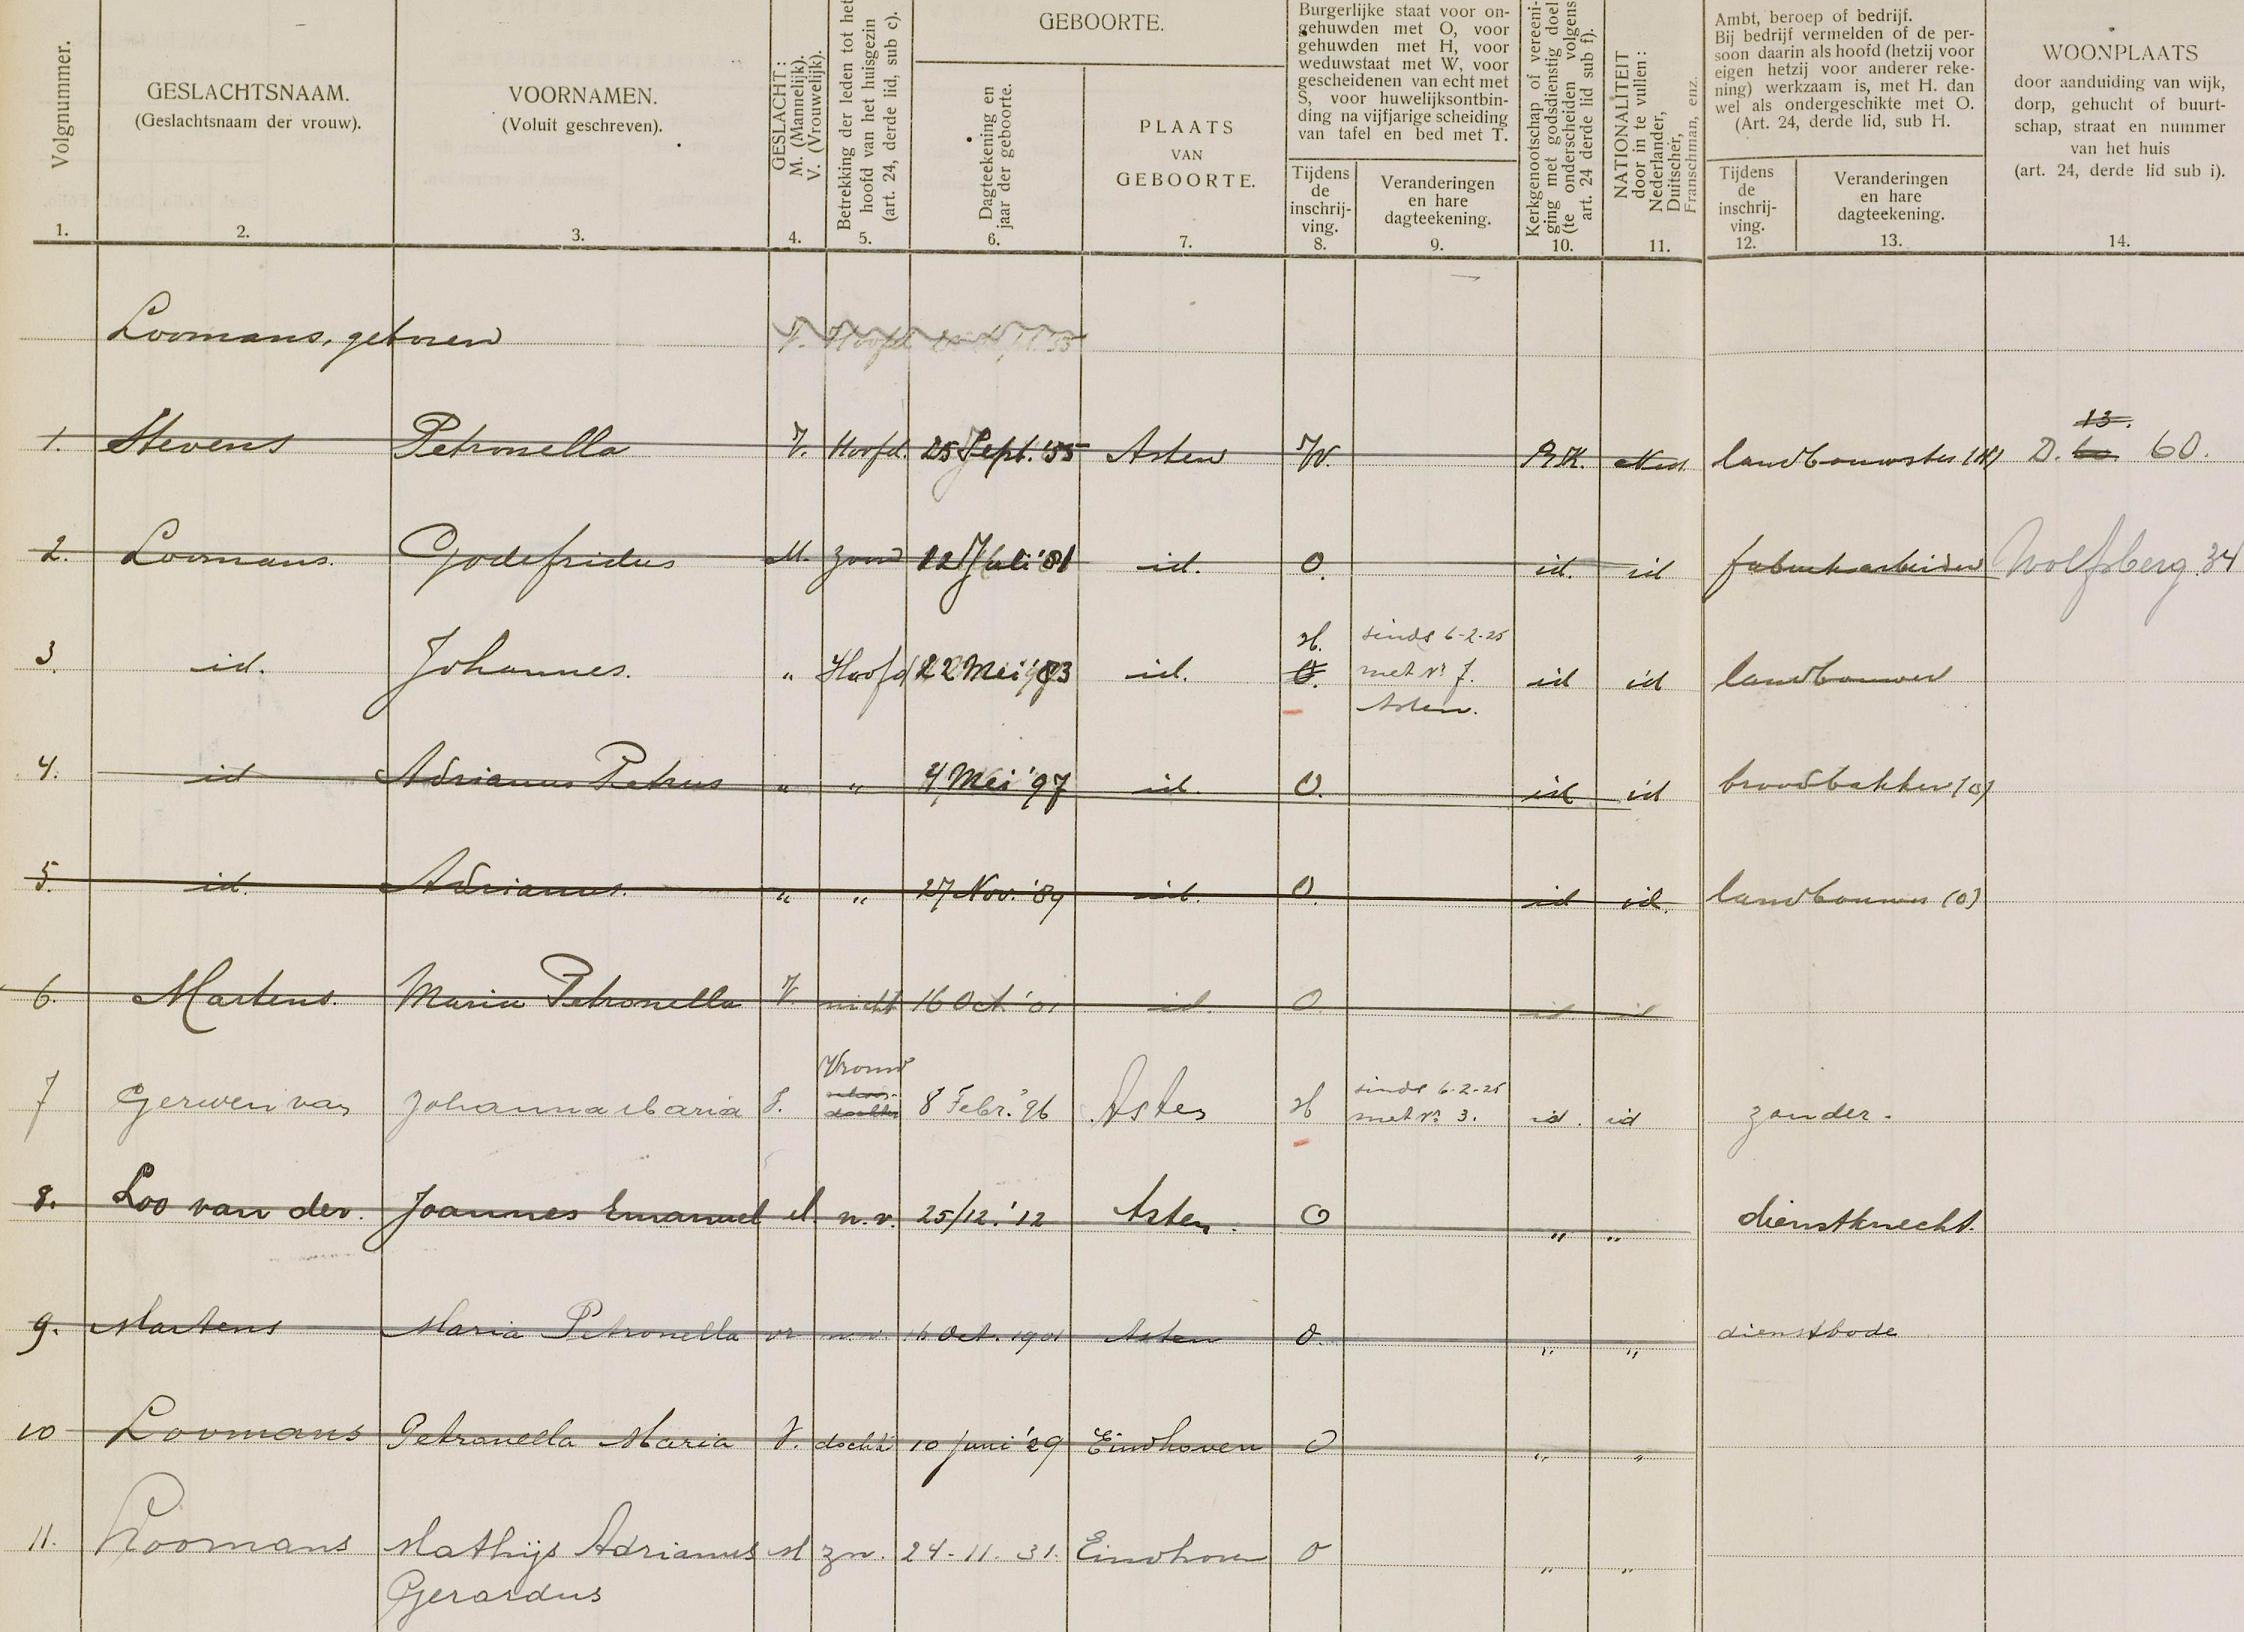 Volgnummer.
1.
GESLACHTSNAAM.
(Geslachtsnaam der vrouw).
2.
VOORNAMEN.
(Voluit geschreven).
3.
GESLACHT:
M. (Mannelijk).
V. (Vrouwelijk).
4.
Betrekking der leden tot het
hoofd van het huisgezin
(art. 24, derde lid, sub c).
5.
GEBOORTE.
Dagteekening en
jaar der geboorte.
6.
PLAATS
VAN
GEBOORTE.
7.
Burgerlijke staat voor on-
gehuwden met O, voor
gehuwden met H, voor
weduwstaat met W, voor
gescheidenen van echt met
S, voor huwelijksontbin-
ding na vijfjarige scheiding
van tafel en bed met T.
Tijdens
de
inschrij-
ving.
8.
Veranderingen
en hare
dagteekening.
9.
Kerkgenootschap of vereeni-
ging met godsdienstig doel
(te onderscheiden volgens
art. 24 derde lid sub f).
10.
NATIONALITEIT
door in te vullen:
Nederlander,
Duitscher,
Franschman, enz.
11.
Ambt, beroep of bedrijf.
Bij bedrijf vermelden of de per-
soon daarin als hoofd (hetzij voor
eigen hetzij voor anderer reke-
ning) werkzaam is, met H. dan
wel als ondergeschikte met O.
(Art. 24, derde lid, sub H.
Tijdens
de
inschrij-
ving.
12.
Veranderingen
en hare
dagteekening.
13.
WOONPLAATS
door aanduiding van wijk,
dorp, gehucht of buurt-
schap, straat en nummer
van het huis
(art. 24, derde lid sub i).
14.
Loomans, geboren V. Hoofd
13.
1. Stevens Petronella V. Hoofd 25 Sept. '55 Asten W. R.K. Ned. landbouwster (H) D. 60.
2. Loomans. Godefridus M. zoon 12 Juli '81 id. O. id. id fabrieksarbeider Wolfsberg 34
H. sinds 6-2-25
3. id. Johannes. " Hoofd 22 Mei '83 id. O. met No 7. id id landbouwer
Asten.
4. id Adrianus Petrus " " 4 Mei '97 id. O. id id broodbakker (O)
5. id. Adrianus. " " 27 Nov. '89 id. O. id id. landbouwer (O)
6. Martens. Maria Petronella V. nicht 16 Oct '01 id. O. id id
Vrouw sinds 6-2-25
7 Gerwen van Johanna Maria V. 8 Febr. '96 Asten H met No 3. id. id zonder.
8. Loo van der. Joannes Emanuel M. n.v. 25/12.'12 Asten. O " " dienstknecht.
9. Martens Maria Petronella vr n.v. 16 Oct. 1901 Asten O. " " dienstbode
10 Loomans Petronella Maria V. docht 10 Juni '29 Eindhoven O " "
11. Loomans Mathijs Adrianus M zn. 24-11.31. Eindhoven O " "
Gerardus